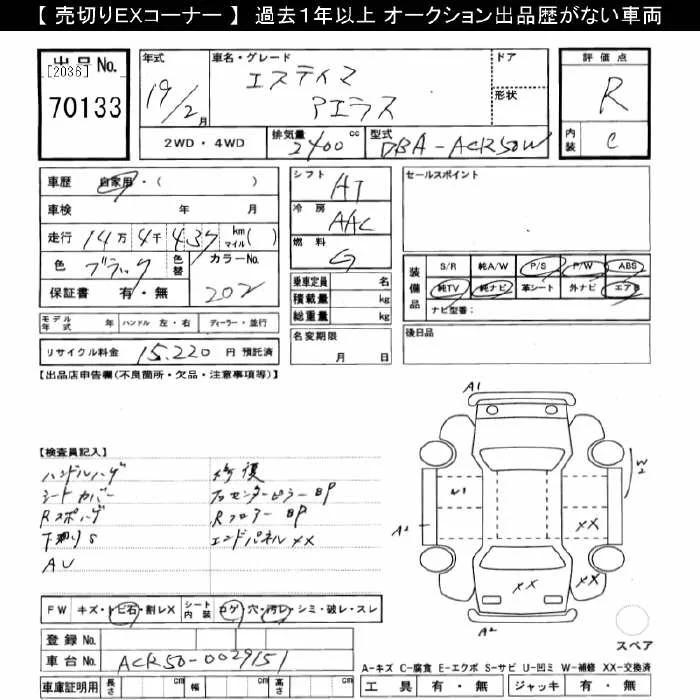 【 売切りEXコーナー 】 過去1年以上 オークション出品歴がない車両
出品No.
[2036]
70133
年式
19/2月
車名・グレード
エスティマ
アエラス
ドア
形状
2WD・4WD
排気量
2400 cc
型式
DBA-ACR50W
評価点
R
内装
C
車歴 自家用・( )
車検 年 月
走行 14万4千437 km マイル( )
色 ブラック 色替 カラーNo.
202
保証書 有・無
シフト
AT
冷房
AAC
燃料
G
乗車定員 名
積載量 kg
総重量 kg
セールスポイント
装備品
S/R 純A/W P/S P/W ABS
純TV 純ナビ 革シート 外ナビ エアB
ナビ型番:
モデル年式 年 ハンドル 左・右 ディーラー・並行
リサイクル料金 15,220 円 預託済
名変期限
月 日
後日品
【出品店申告欄(不良箇所・欠品・注意事項等)】
【検査員記入】
ハンドルハゲ
シートカバー
下廻りS
AU
修復
Rフロアー BP
エンドパネルXX
A1
W2
W1
A2
XX
XX
XX
A2
スペア
FW キズ・トビ石・割レX シート内装 コゲ・穴・汚レ・シミ・破レ・スレ
登録 No.
車台 No. ACR50-0029151
車庫証明用 長さ cm 幅 cm 高さ cm
A-キズ C-腐食 E-エクボ S-サビ U-凹ミ W-補修 XX-交換済
工具 有・無 ジャッキ 有・無